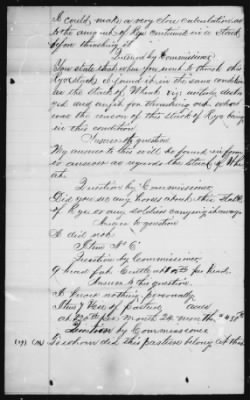 I could, make a very close calculation as
to the amount of Rye contained in a Stack
before thrashing it
Question by Commissioner
You state that when you went to thrash this
Rye stack you found it in the same condition
as the Stack of Wheat viz: entirely
and unfit for thrashing out what
was the reason of this stack of Rye being
in this condition
Answer to question
My answer to this will be found in former
answer as regards the stack of Wheat
Question by Commissioner
Did you see any horses about this Stack
of Rye or any soldiers carrying it away
Answer to question
I did not
Item No 6
Question by Commissioner
9 head fat Cattle at per head.
Answer to this question
I know nothing personally
Item 7 Use of pasture acres
at per month 24 months
Question by Commissioner
To whom did this pasture belong at this